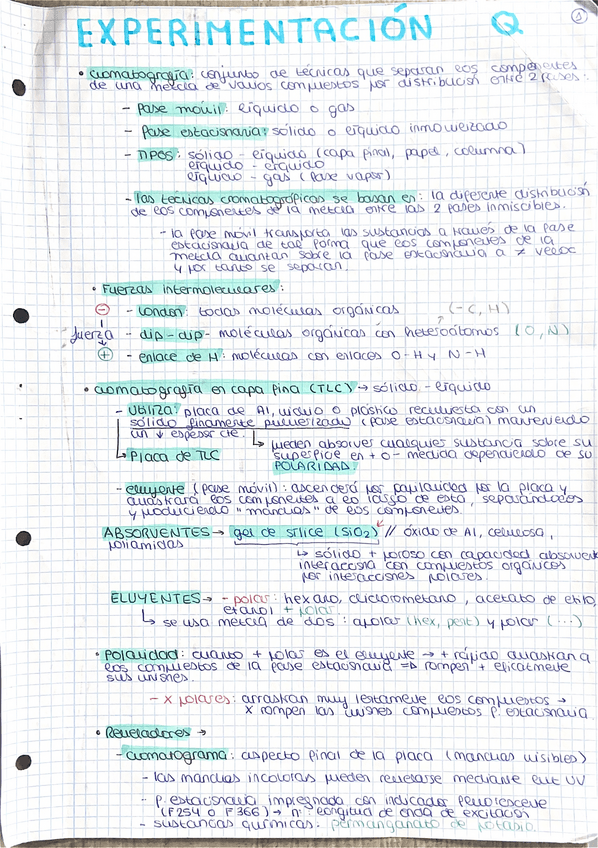 EXPERIMENTACIÓN Q 1
• Cromatografía: conjunto de técnicas que separan los componentes
de una mezcla de varios compuestos por distribución entre 2 fases:
- Fase móvil: líquido o gas
- Fase estacionaria: sólido o líquido inmovilizado
- TIPOS: sólido - líquido (capa final, papel, columna)
líquido - líquido
líquido - gas (fase vapor)
- las técnicas cromatográficas se basan en: la diferente distribución
de los componentes de la mezcla entre las 2 fases inmiscibles.
- la fase móvil transporta las sustancias a través de la fase
estacionaria de tal forma que los componentes de la
mezcla avanzan sobre la fase estacionaria a ≠ veloc
y por tanto se separan.
• Fuerzas intermoleculares:
⊖ - London: todas moléculas orgánicas (-C, H)
fuerza - dip-dip- moléculas orgánicas con heteroátomos (O, N)
⊕ - enlace de H: moléculas con enlaces O-H y N-H
• Cromatografía en capa fina (TLC) → sólido - líquido
- Utiliza: placa de Al, vidrio o plástico recubierta con un
sólido finamente pulverizado (fase estacionaria) manteniendo
un ↓ espesor cte.
↳ pueden absorver cualquier sustancia sobre su
↳ Placa de TLC superficie en + o - medida dependiendo de su
POLARIDAD.
- eluyente (fase móvil): ascenderá por capilaridad por la placa y
arrastrará los componentes a lo largo de esta, separándolos
y produciendo "manchas" de los componentes.
ABSORVENTES → gel de sílice (SiO2) // óxido de Al, celulosa,
poliamidas
↳ sólido + poroso con capacidad absorvente
interacciona con compuestos orgánicos
por interacciones polares.
ELUYENTES → - polar: hexano, diclorometano, acetato de etilo,
etanol + polar.
↳ se usa mezcla de dos: apolar (hex, pent) y polar (...)
• Polaridad: cuanto + polar es el eluyente → + rápido arrastran a
los compuestos de la fase estacionaria ⇒ rompen + eficazmente
sus uniones.
- x polares: arrastran muy lentamente los compuestos →
x rompen las uniones compuestos f. estacionaria
• Reveladores →
- Cromatograma: aspecto final de la placa (manchas visibles)
- las manchas incoloras pueden revelarse mediante luz UV
- f. estacionaria impregnada con indicador fluorescente
(F254 o F366) → nº: longitud de onda de excitación
- sustancias químicas: permanganato de potasio.